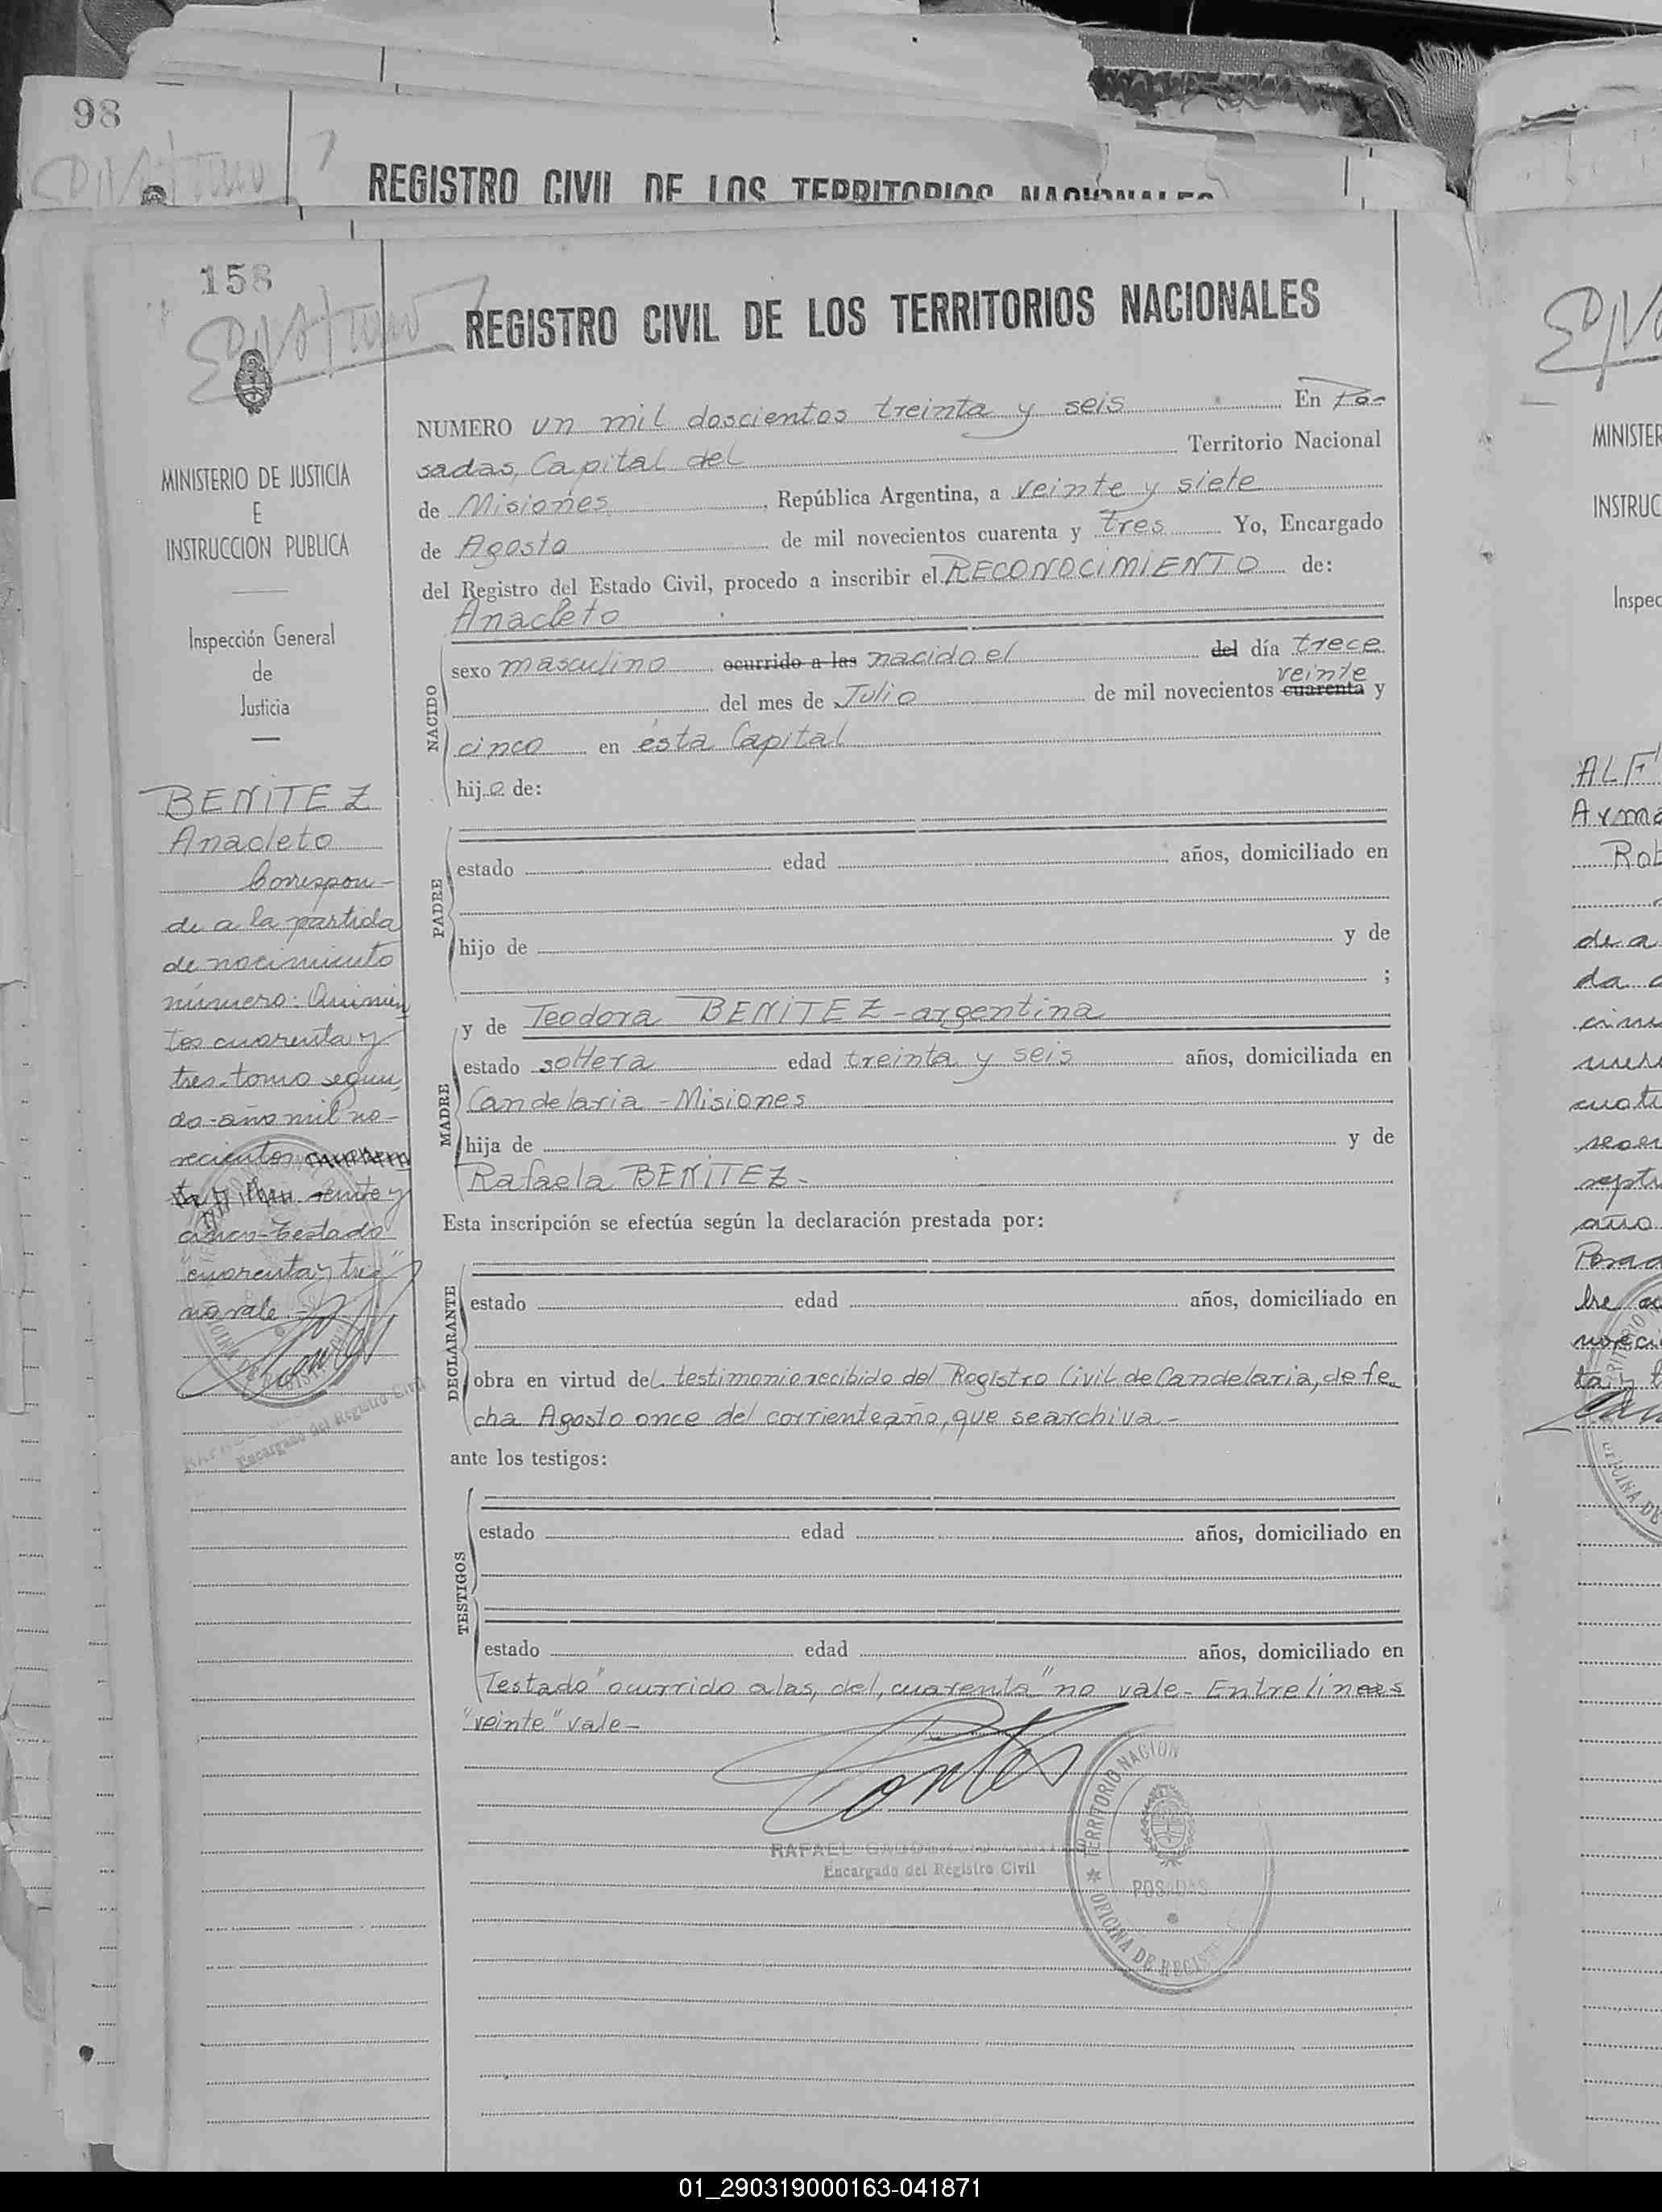 98
REGISTRO CIVIL DE LOS TERRITORIOS NACIONALES
158
REGISTRO CIVIL DE LOS TERRITORIOS NACIONALES
NUMERO un mil doscientos treinta y seis En Po-
sadas, Capital del Territorio Nacional
de Misiones, República Argentina, a veinte y siete
de Agosto de mil novecientos cuarenta y tres Yo, Encargado
del Registro del Estado Civil, procedo a inscribir el RECONOCIMIENTO de:
Anacleto
NACIDO
sexo masculino ocurrido a las nacido el del día trece
veinte
del mes de Julio de mil novecientos cuarenta y
cinco en ésta Capital
hijo de:
PADRE
estado edad años, domiciliado en
hijo de y de
;
MADRE
y de Teodora BENITEZ - argentina
estado soltera edad treinta y seis años, domiciliada en
Candelaria - Misiones
hija de y de
Rafaela BENITEZ.-
Esta inscripción se efectúa según la declaración prestada por:
DECLARANTE
estado edad años, domiciliado en
obra en virtud del testimonio recibido del Registro Civil de Candelaria, de fe
cha Agosto once del corriente año, que se archiva.-
ante los testigos:
TESTIGOS
estado edad años, domiciliado en
estado edad años, domiciliado en
Testado "ocurrido a las, del, cuarenta" no vale- Entre líneas
"veinte" vale-
RAFAEL
Encargado del Registro Civil
TERRITORIO NACION
POSADAS
OFICINA DE REGIST
MINISTERIO DE JUSTICIA
E
INSTRUCCION PUBLICA
Inspección General
de
Justicia
BENITEZ
Anacleto
Correspon-
de a la partida
de nacimiento
número: Quinien
tos cuarenta y
tres-tomo segun
do-año mil no-
vecientos
veinte y
cinco-Testado
"cuarenta y tres"
no vale.-
Encargado del Registro Civil
MINISTER
INSTRUC
Inspec
ALF
Arma
Rob
de a
da
Posad
OFICINA DE
01_290319000163-041871